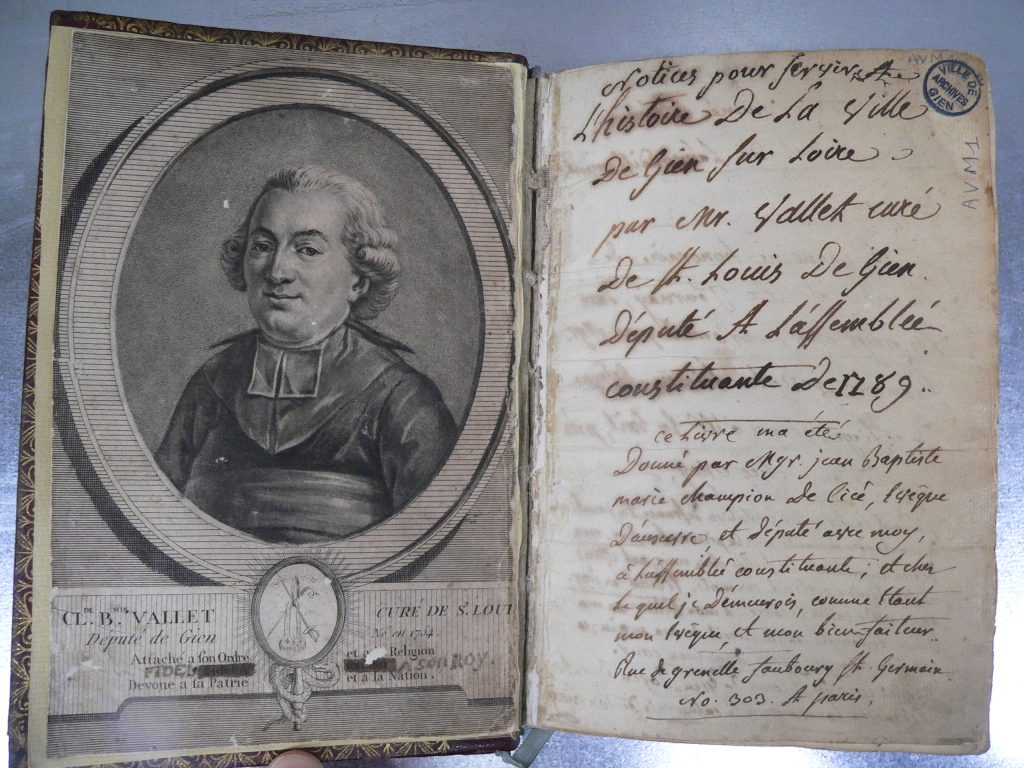 CL.DE B.MIN VALLET
CURÉ DE St. LOUI
Député de Gien
Né en 1754.
Attaché a son Ordre
et Religion
FIDEL
A SON ROY.
Devoué a sa Patrie
et à la Nation.
Notices pour servir A
L'histoire De La Ville
De Gien sur Loire
par Mr. Vallet curé
De St. Louis De Gien.
Député A L'assemblée
constituante De 1789..
ce Livre ma été
Donné par Mgr. jean Baptiste
marie champion De cicé, Evêque
D'auxerre et député avec moy,
à L'assemblée constituante, et cher
lequel je Démeurois, comme Etant
mon Evêque et mon bienfaiteur.
Rue de grenelle fauboury St. Germain.
No. 303. A paris.
VILLE DE
ARCHIVES
GIEN
AVN1